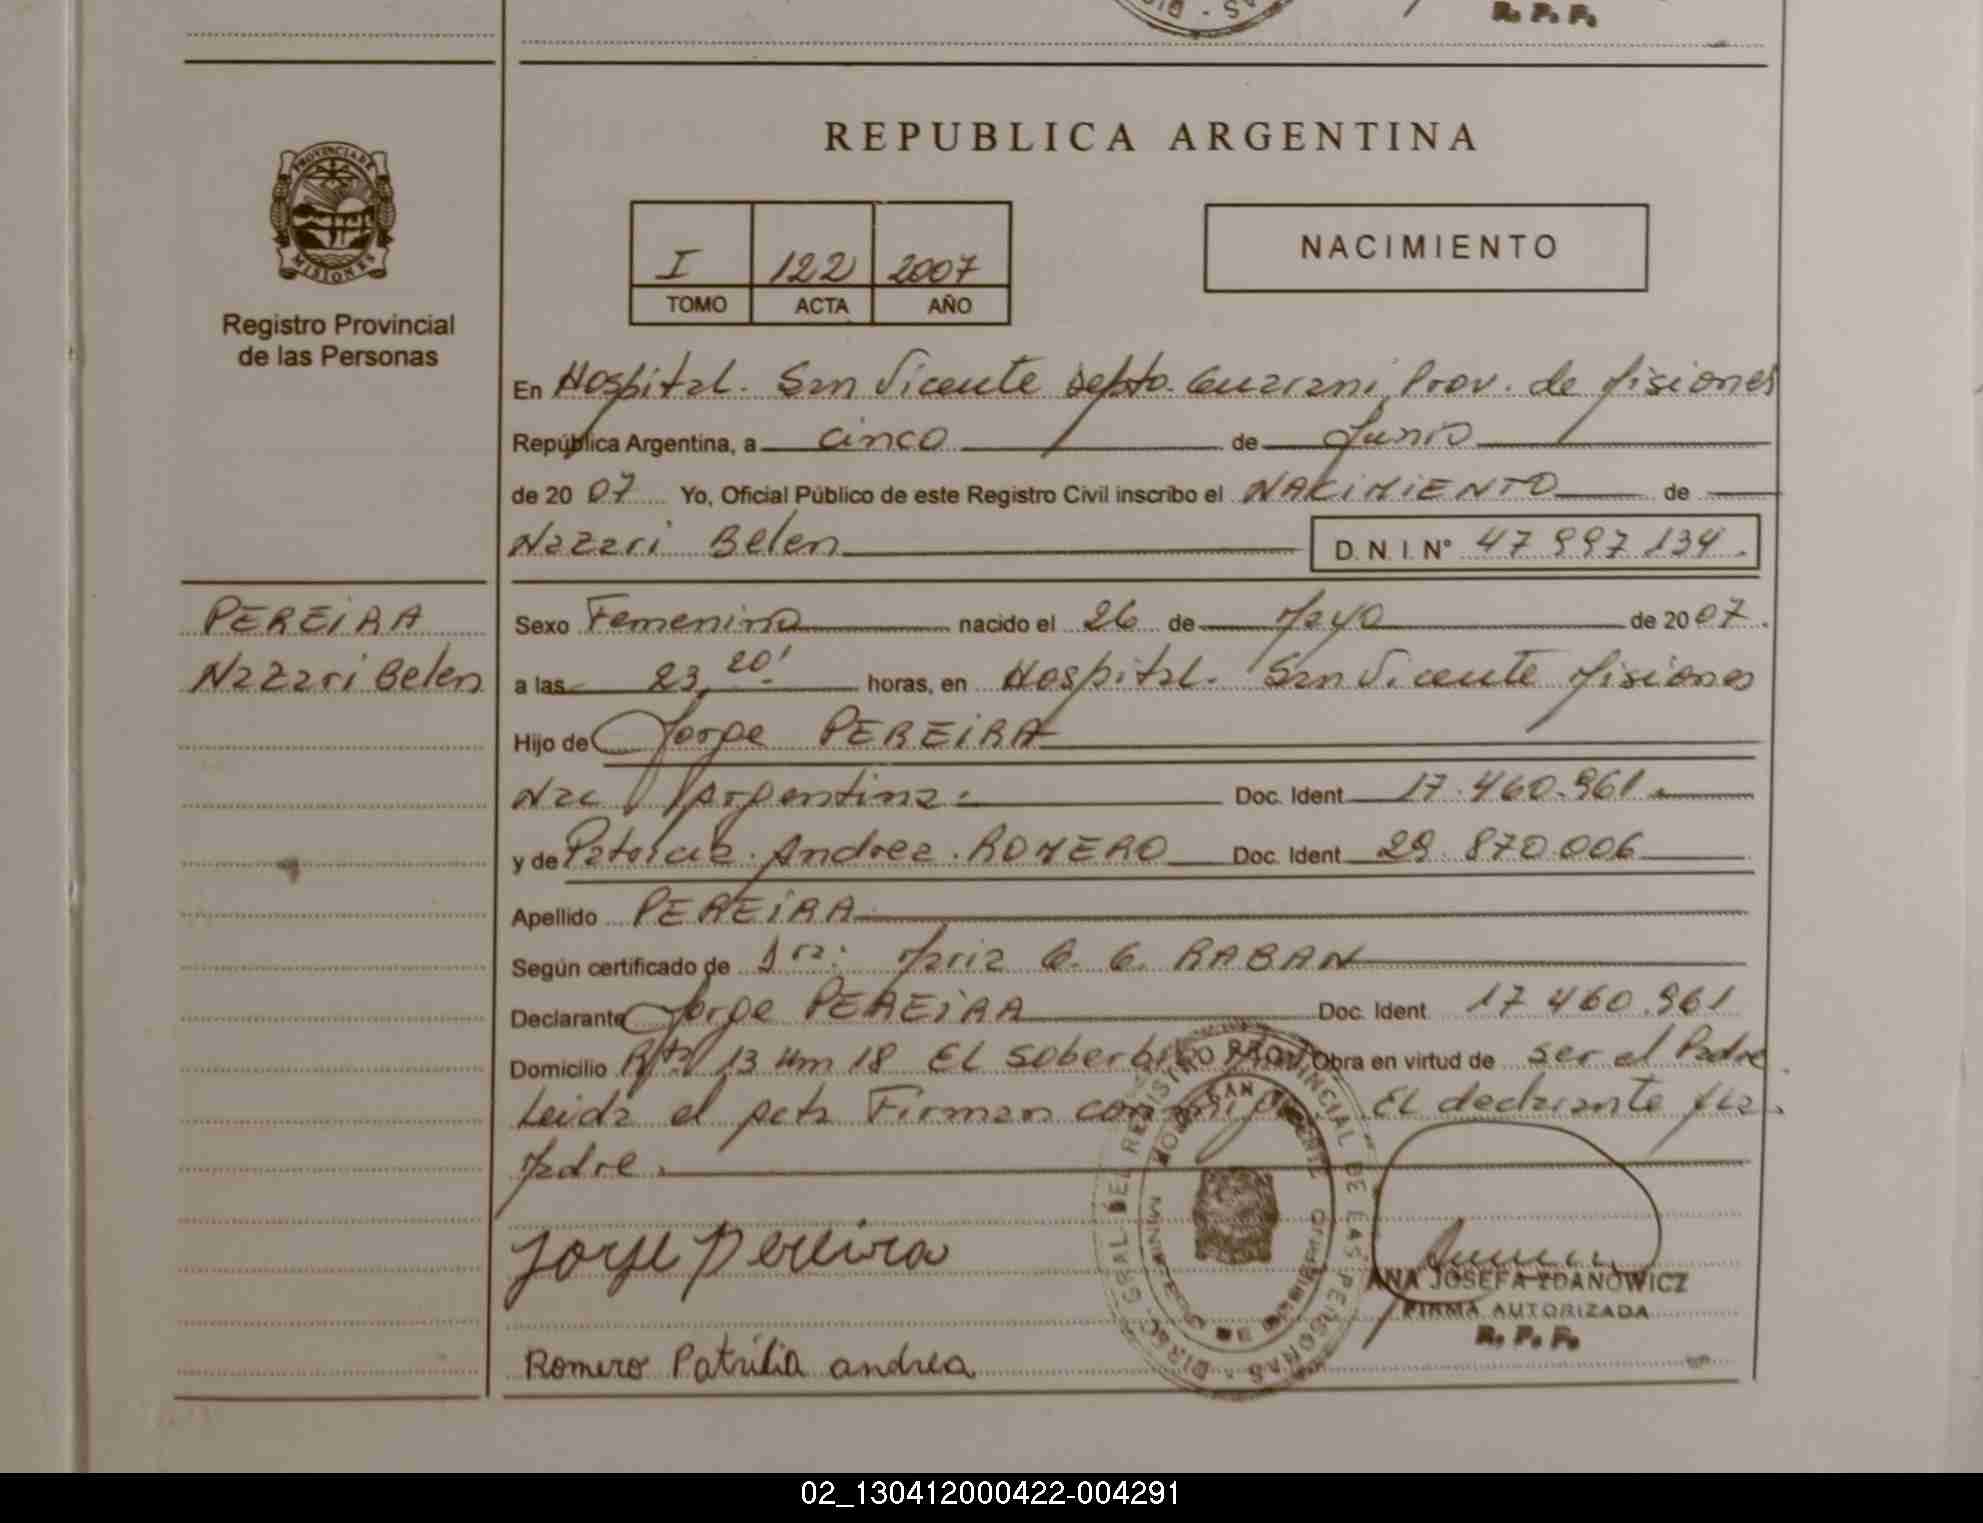 R. P. F.
REPUBLICA ARGENTINA
PROVINCIA DE
MISIONES
Registro Provincial
de las Personas
I 122 2007
TOMO ACTA AÑO
NACIMIENTO
En Hospital. San Vicente depto. Guarani, Prov. de Misiones
República Argentina, a cinco de Junio
de 20 07 Yo, Oficial Público de este Registro Civil inscribo el NACIMIENTO de
Nazari Belen D. N. I. N° 47 997 134.
PEREIRA
Nazari Belen
Sexo Femenino nacido el 26 de Mayo de 20 07.
a las 23,20' horas, en Hospital. San Vicente Misiones
Hijo de Jorge PEREIRA
Nac Argentina. Doc. Ident 17.460.961.
y de Patricia. Andrea. ROMERO Doc. Ident 29.870.006
Apellido PEREIRA
Según certificado de Dra: Maria G. G. RABAN
Declarante Jorge PEREIRA Doc. Ident. 17 460.961
Domicilio Rta 13 Km 18 EL soberbio Obra en virtud de ser el Padre
Leida el acta Firman conmigo. EL declarante y la
Madre.
DIREC. GRAL. DEL REGISTRO PROVINCIAL DE LAS PERSONAS
Jorge Pereira
ANA JOSEFA ZDANOWICZ
FIRMA AUTORIZADA
R. P. F.
Romero Patricia andrea
02_130412000422-004291